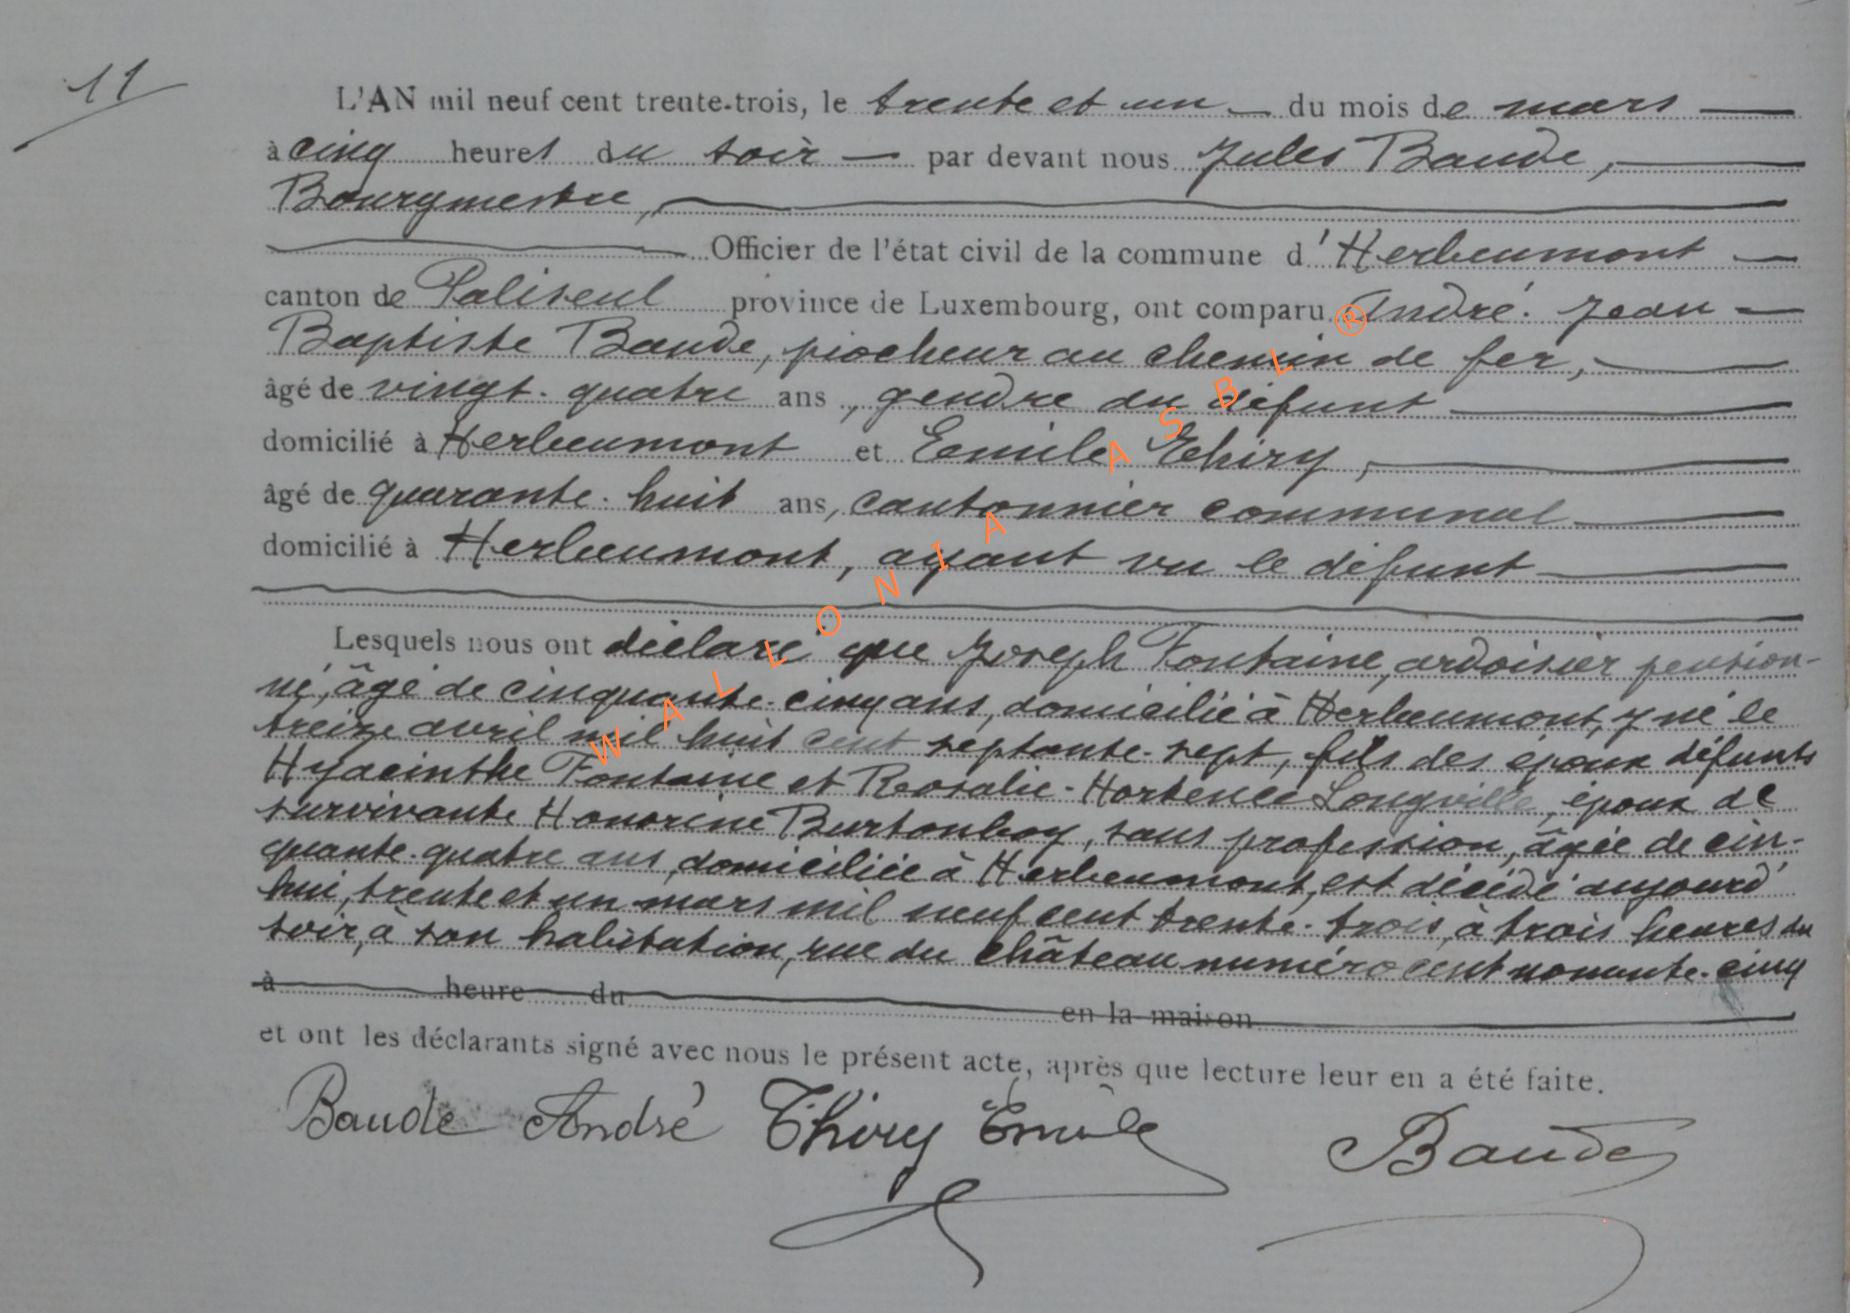 11
L'AN mil neuf cent trente-trois, le trente et un du mois de mars
à cinq heures du soir par devant nous Jules Baude,
Bourgmestre,
Officier de l'état civil de la commune d'Herbeumont
canton de Paliseul province de Luxembourg, ont comparu André-Jean
Baptiste Baude, piocheur au chemin de fer,
âgé de vingt-quatre ans, gendre du défunt
domicilié à Herbeumont et Emile Thiry,
âgé de quarante-huit ans, cantonnier communal
domicilié à Herbeumont, ayant vu le défunt
Lesquels nous ont déclaré que Joseph Fontaine, ardoisier pension-
né, âgé de cinquante-cinq ans, domicilié à Herbeumont, y né le
treize avril mil huit cent septante-sept, fils des époux défunts
Hyacinthe Fontaine et Rosalie-Hortence Longville, époux de
survivante Honorine Burtonboy, sans profession, âgée de cin-
quante-quatre ans, domiciliée à Herbeumont, est décédé aujourd'
hui, trente et un mars mil neuf cent trente-trois, à trois heures du
soir, à son habitation, rue du château numéro cent nonante-cinq
à heure du en la maison
et ont les déclarants signé avec nous le présent acte, après que lecture leur en a été faite.
Baude André Thiry Emile Baude
WALLONIA ASBL ®